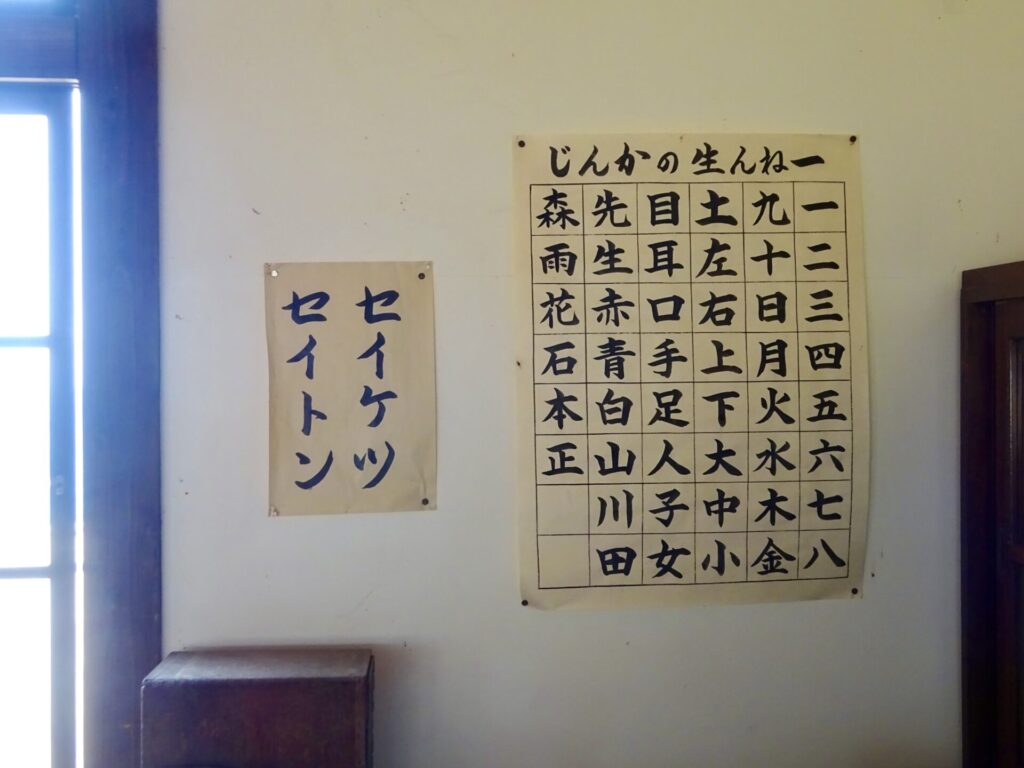 一ねん生のかんじ
一二三四五六七八
九十日月火水木金
土左右上下大中小
目耳口手足人子女
先生赤青白山川田
森雨花石本正
セイケツ
セイトン